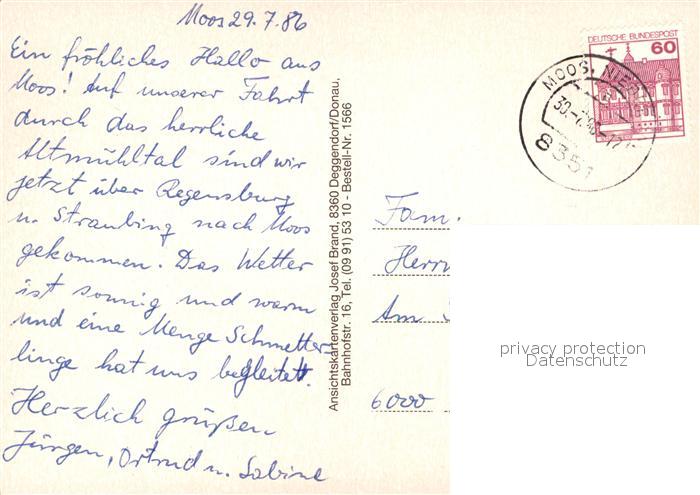 Moos 29.7.86
Ein fröhliches Hallo aus
Moos! Auf unserer Fahrt
durch das herrliche
Altmühltal sind wir
jetzt über Regensburg
u. Straubing nach Moos
gekommen. Das Wetter
ist sonnig und warm
und eine Menge Schmetter-
linge hat uns begleitet.
Herzlich grüßen
Jürgen, Ortrud u. Sabine
Ansichtskartenverlag Josef Brand, 8360 Deggendorf/Donau,
Bahnhofstr. 16, Tel. (09 91) 53 10 - Bestell-Nr. 1566
DEUTSCHE BUNDESPOST
60
MOOS, NIED
30.-7.
17
8351
Fam.
Herr
Am
6000
privacy protection
Datenschutz